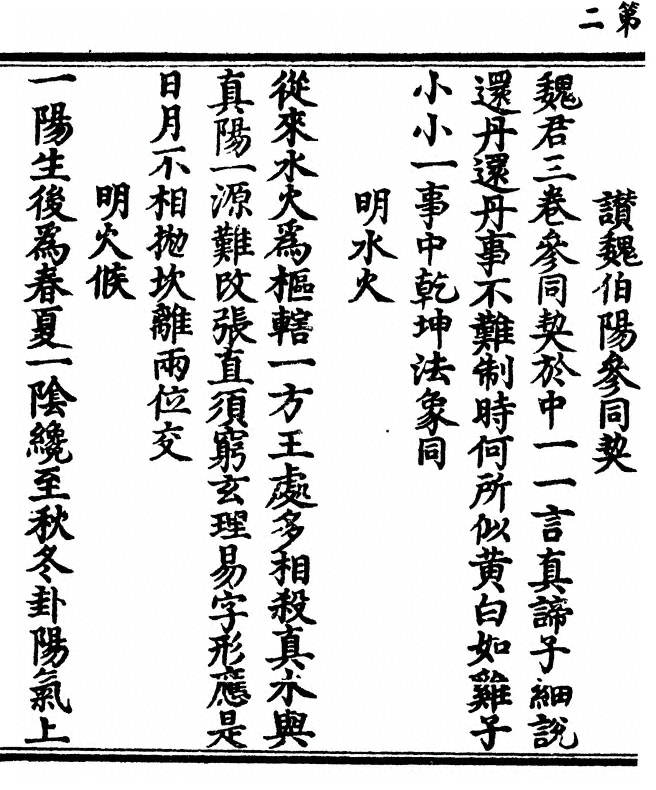 第二
讃魏伯陽參同契
魏君三卷參同契於中一一言真諦子細說
還丹還丹事不難制時何所似黃白如雞子
小小一事中乾坤法象同
明水火
從來水火爲樞轄一方王處多相殺真水與
真陽一源難改張直須窮玄理易字形應是
日月不相拋坎離兩位交
明火候
一陽生後爲春夏一陰纔至秋冬卦陽氣上